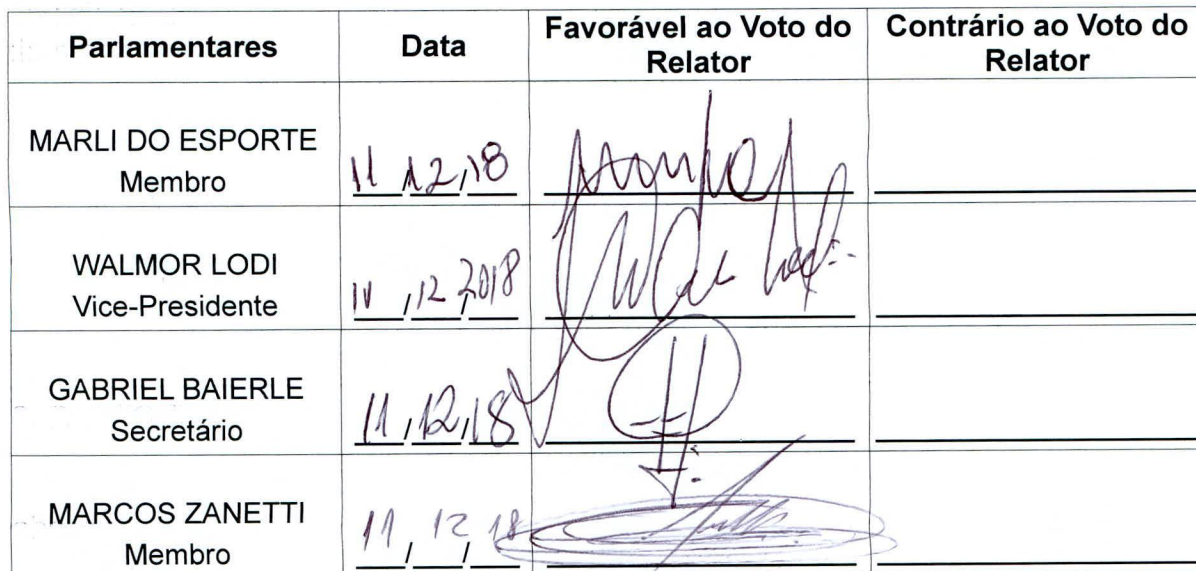 Parlamentares Data Favorável ao Voto do Relator Contrário ao Voto do Relator
MARLI DO ESPORTE
Membro 11/12/18
WALMOR LODI
Vice-Presidente 11/12/2018
GABRIEL BAIERLE
Secretário 11/12/18
MARCOS ZANETTI
Membro 11/12/18